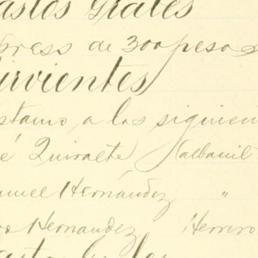 astos Grales
press de 300 pesos
irvientes
stamo a los siguien
é Quiroette Albañil
anuel Hernández "
os Hernandez Herrero